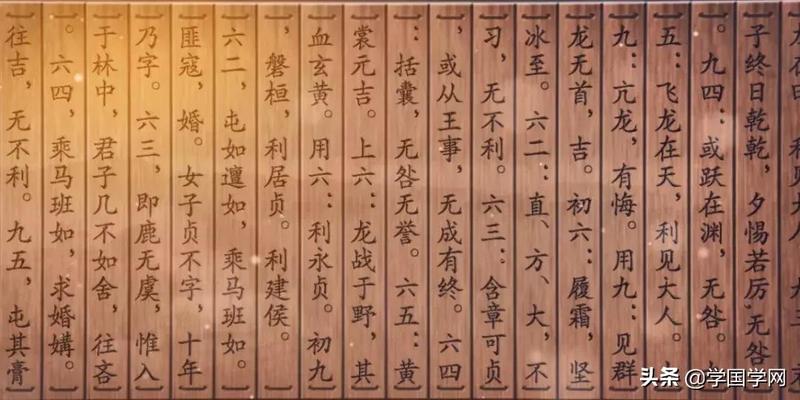 子终日乾乾，夕惕若厉，无咎
。九四：或跃在渊，无咎。
五：飞龙在天，利见大人。
九：亢龙，有悔。用九：见群
龙无首，吉。初六：履霜，坚
冰至。六二：直、方、大，不
习，无不利。六三：含章可贞
，或从王事，无成有终。六四
：括囊，无咎无誉。六五：黄
裳元吉。上六：龙战于野，其
血玄黄。用六：利永贞。初九
，磐桓，利居贞。利建侯。
六二，屯如邅如，乘马班如。
匪寇，婚。女子贞不字，十年
乃字。六三，即鹿无虞，惟入
于林中，君子几不如舍，往吝
。六四，乘马班如，求婚媾。
往吉，无不利。九五，屯其膏
头条 @学国学网